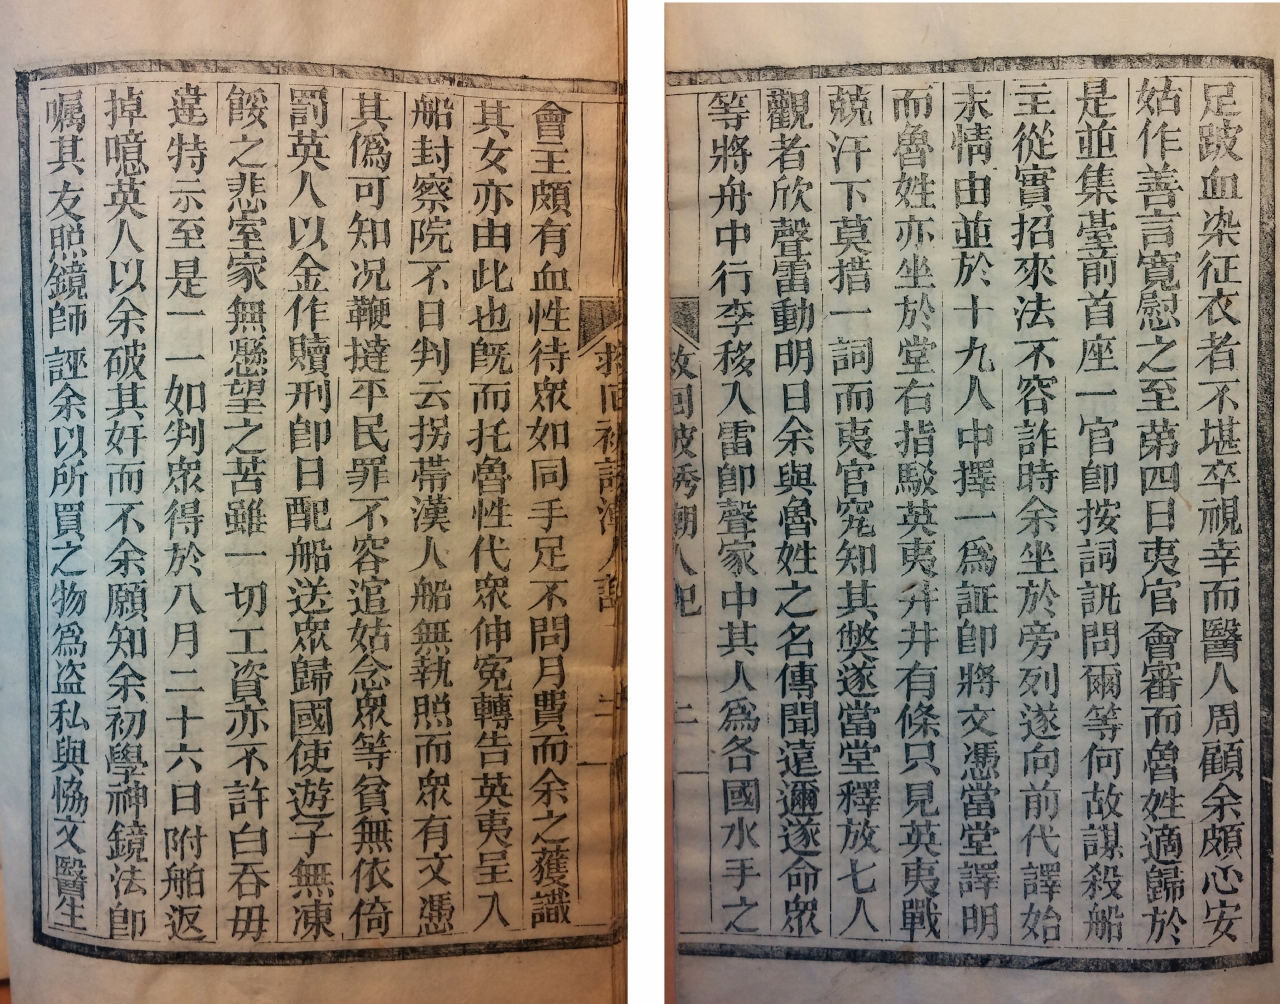 足跛血染征衣者不堪卒視幸而醫人周顧余頗心安
姑作善言寬慰之至第四日夷官會審而魯姓適歸於
是並集臺前首座一官即按詞訊問爾等何故謀殺船
主從實招來法不容詐時余坐於旁列遂向前代譯始
末情由並於十九人中擇一為証即將文憑當堂譯明
而魯姓亦坐於堂右指駁英夷井井有條只見英夷戰
兢汗下莫措一詞而夷官究知其弊遂當堂釋放七人
觀者欣聲雷動明日余與魯姓之名傳聞遠邇遂命眾
等將舟中行李移入雷即聲家中其人為各國水手之
救回被誘潮人記
二
會主頗有血性待眾如同手足不問月費而余之獲識
其女亦由此也既而托魯性代眾伸冤轉告英夷呈入
船封察院不日判云拐帶漢人船無執照而眾有文憑
其偽可知况鞭撻平民罪不容逭姑念眾等貧無依倚
罰英人以金作贖刑即日配船送眾歸國使遊子無凍
餒之悲室家無懸望之苦雖一切工資亦不許白吞毋
違特示至是一一如判眾得於八月二十六日附舶返
掉噫英人以余破其奸而不余願知余初學神鏡法即
囑其友照鏡師誣余以所買之物為盜私與恊文醫生